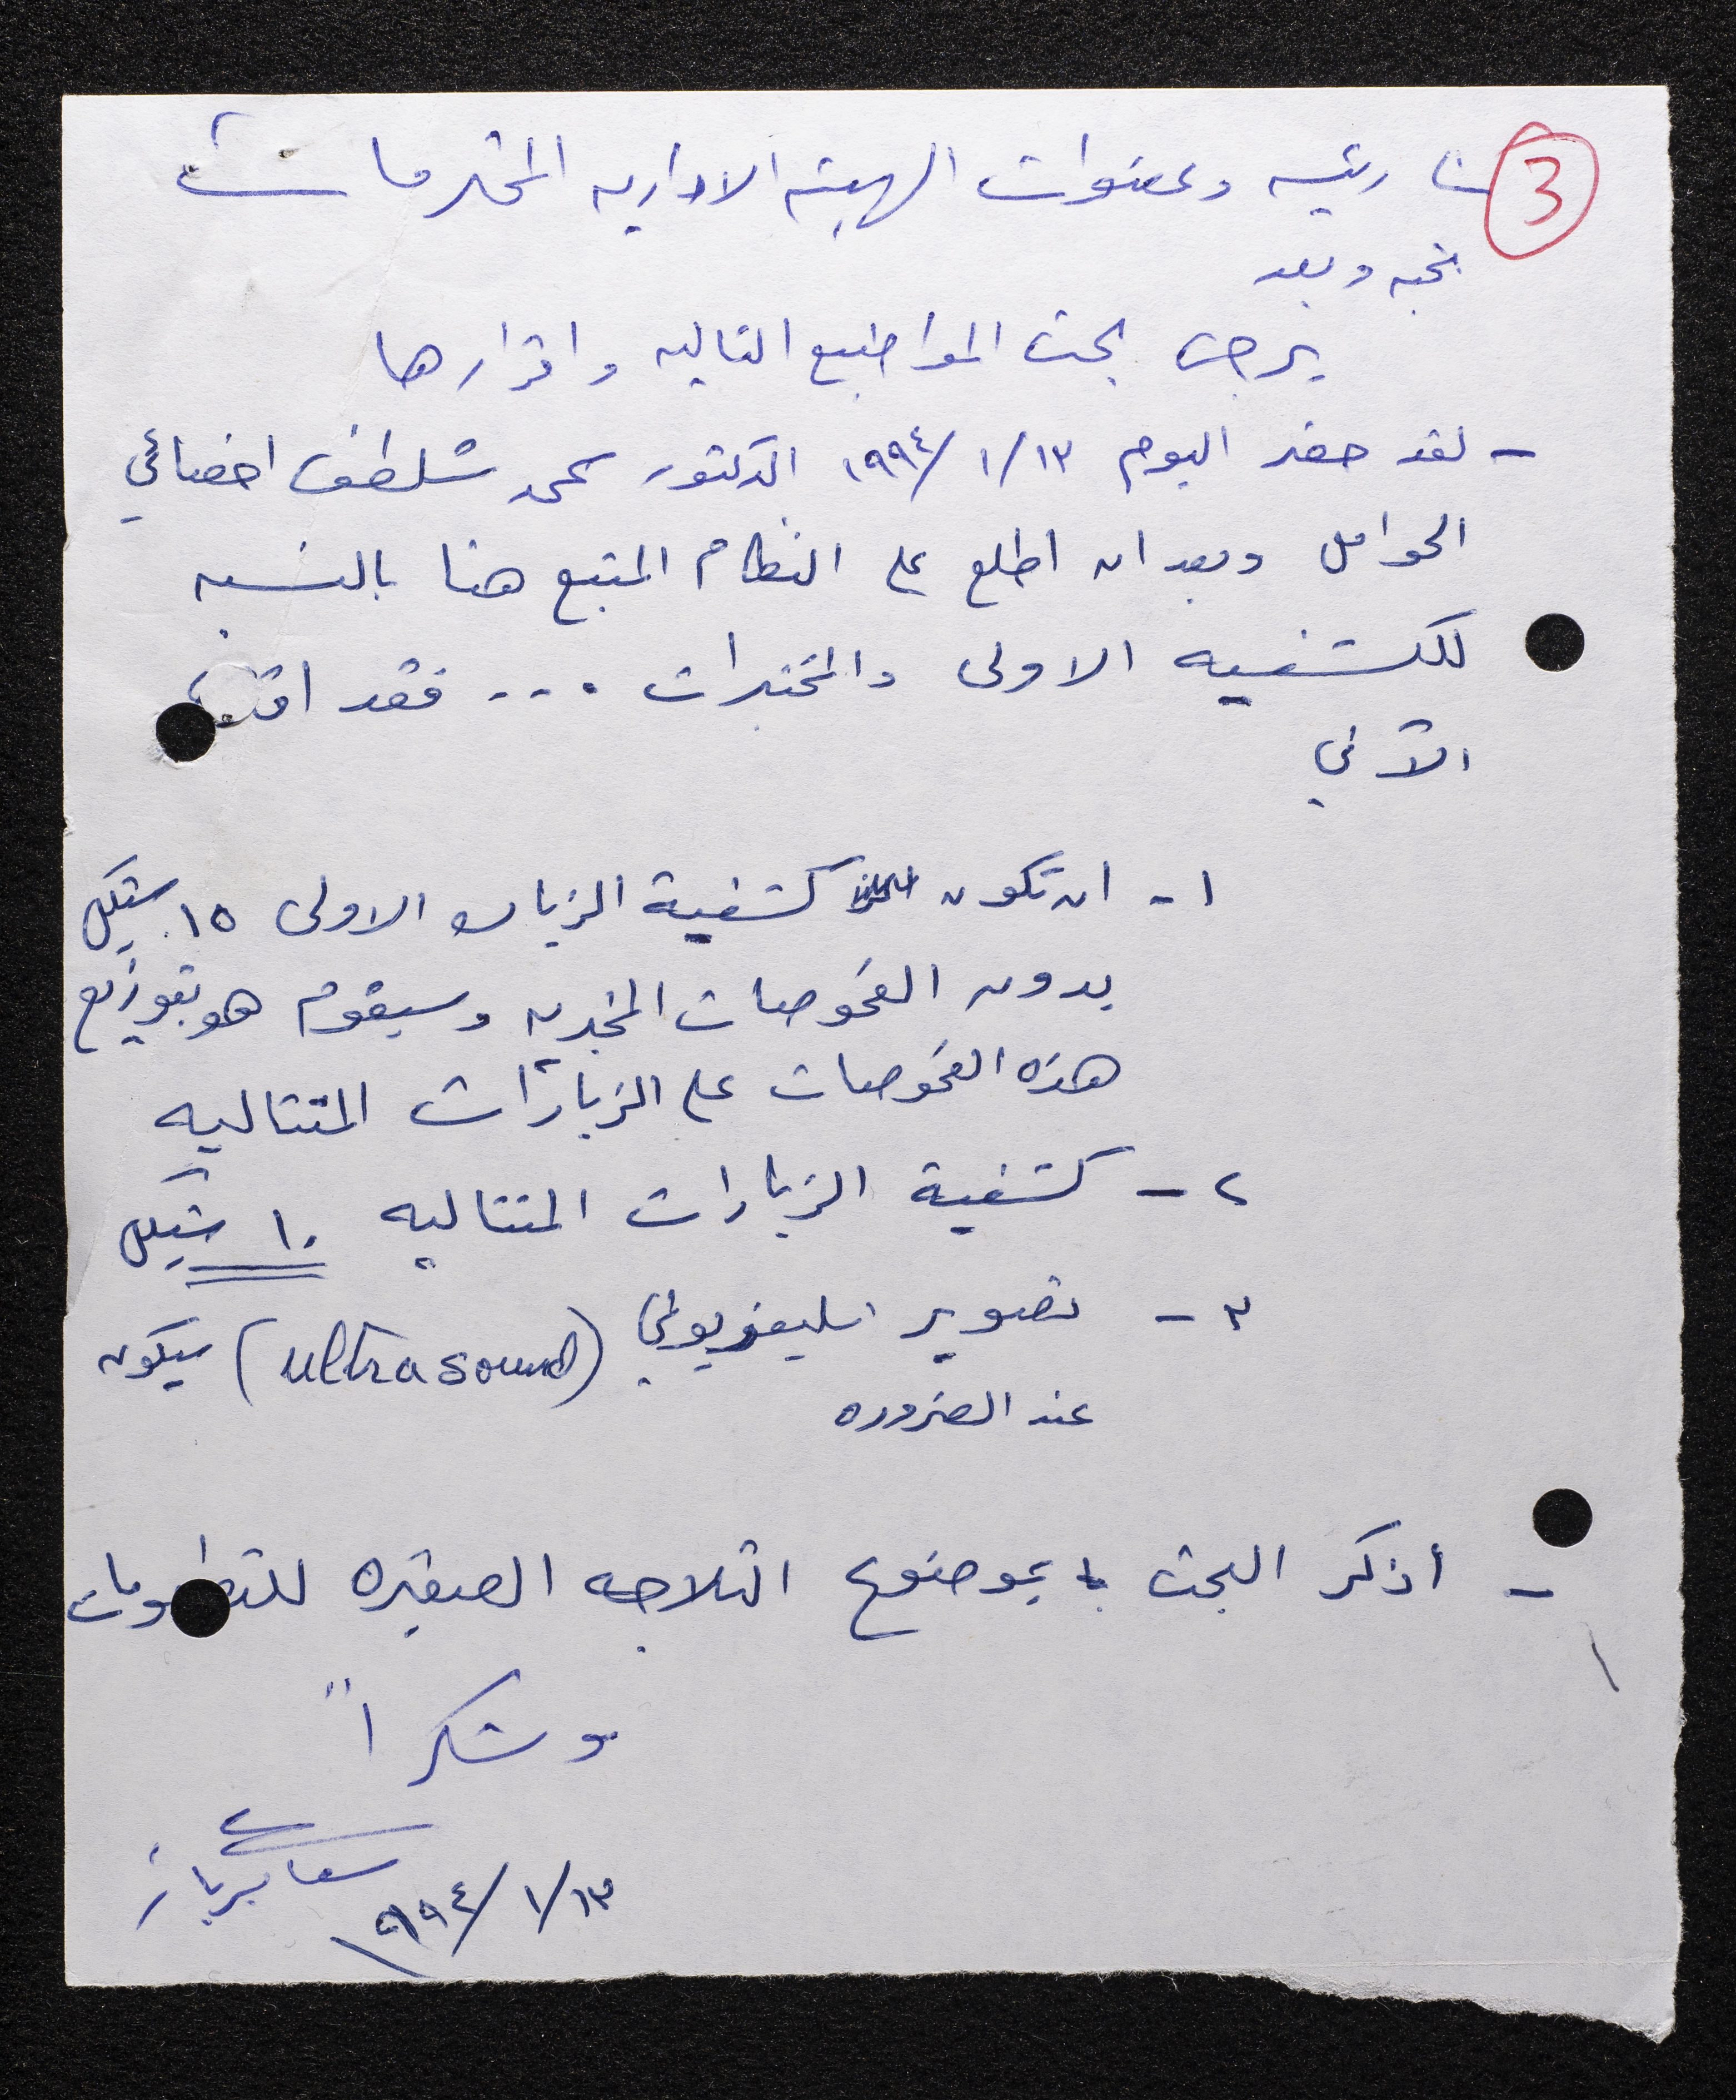 3
رئيسه وعضوات الهيئه الاداريه المحترمات
تحيه وبعد
يرجى بحث المواضيع التاليه واقرارها
- لقد حضر اليوم ١٩٩٤/١/١٣ الدكتور محمد شلطف اخصائي
الحوامل وبعد ان اطلع على النظام المتبع هنا بالنسبه
للكشفيه الاولى والمختبرات .... فقد
الآتي
١- ان تكون كشفية الزياره الاولى ١٥ شيكل
بدون الفحوصات المخبريه وسيقوم هو بتوزيع
هذه الفحوصات على الزيارات المتتاليه
٢- كشفية الزيارات المتتاليه ١٠ شيكل
٣- تصوير تليفزيوني (ultra sound) سيكون
عند الضروره
- أذكر البحث بموضوع الثلاجه الصغيره للتطعيمات
وشكراً
١٩٩٤/١/١٣